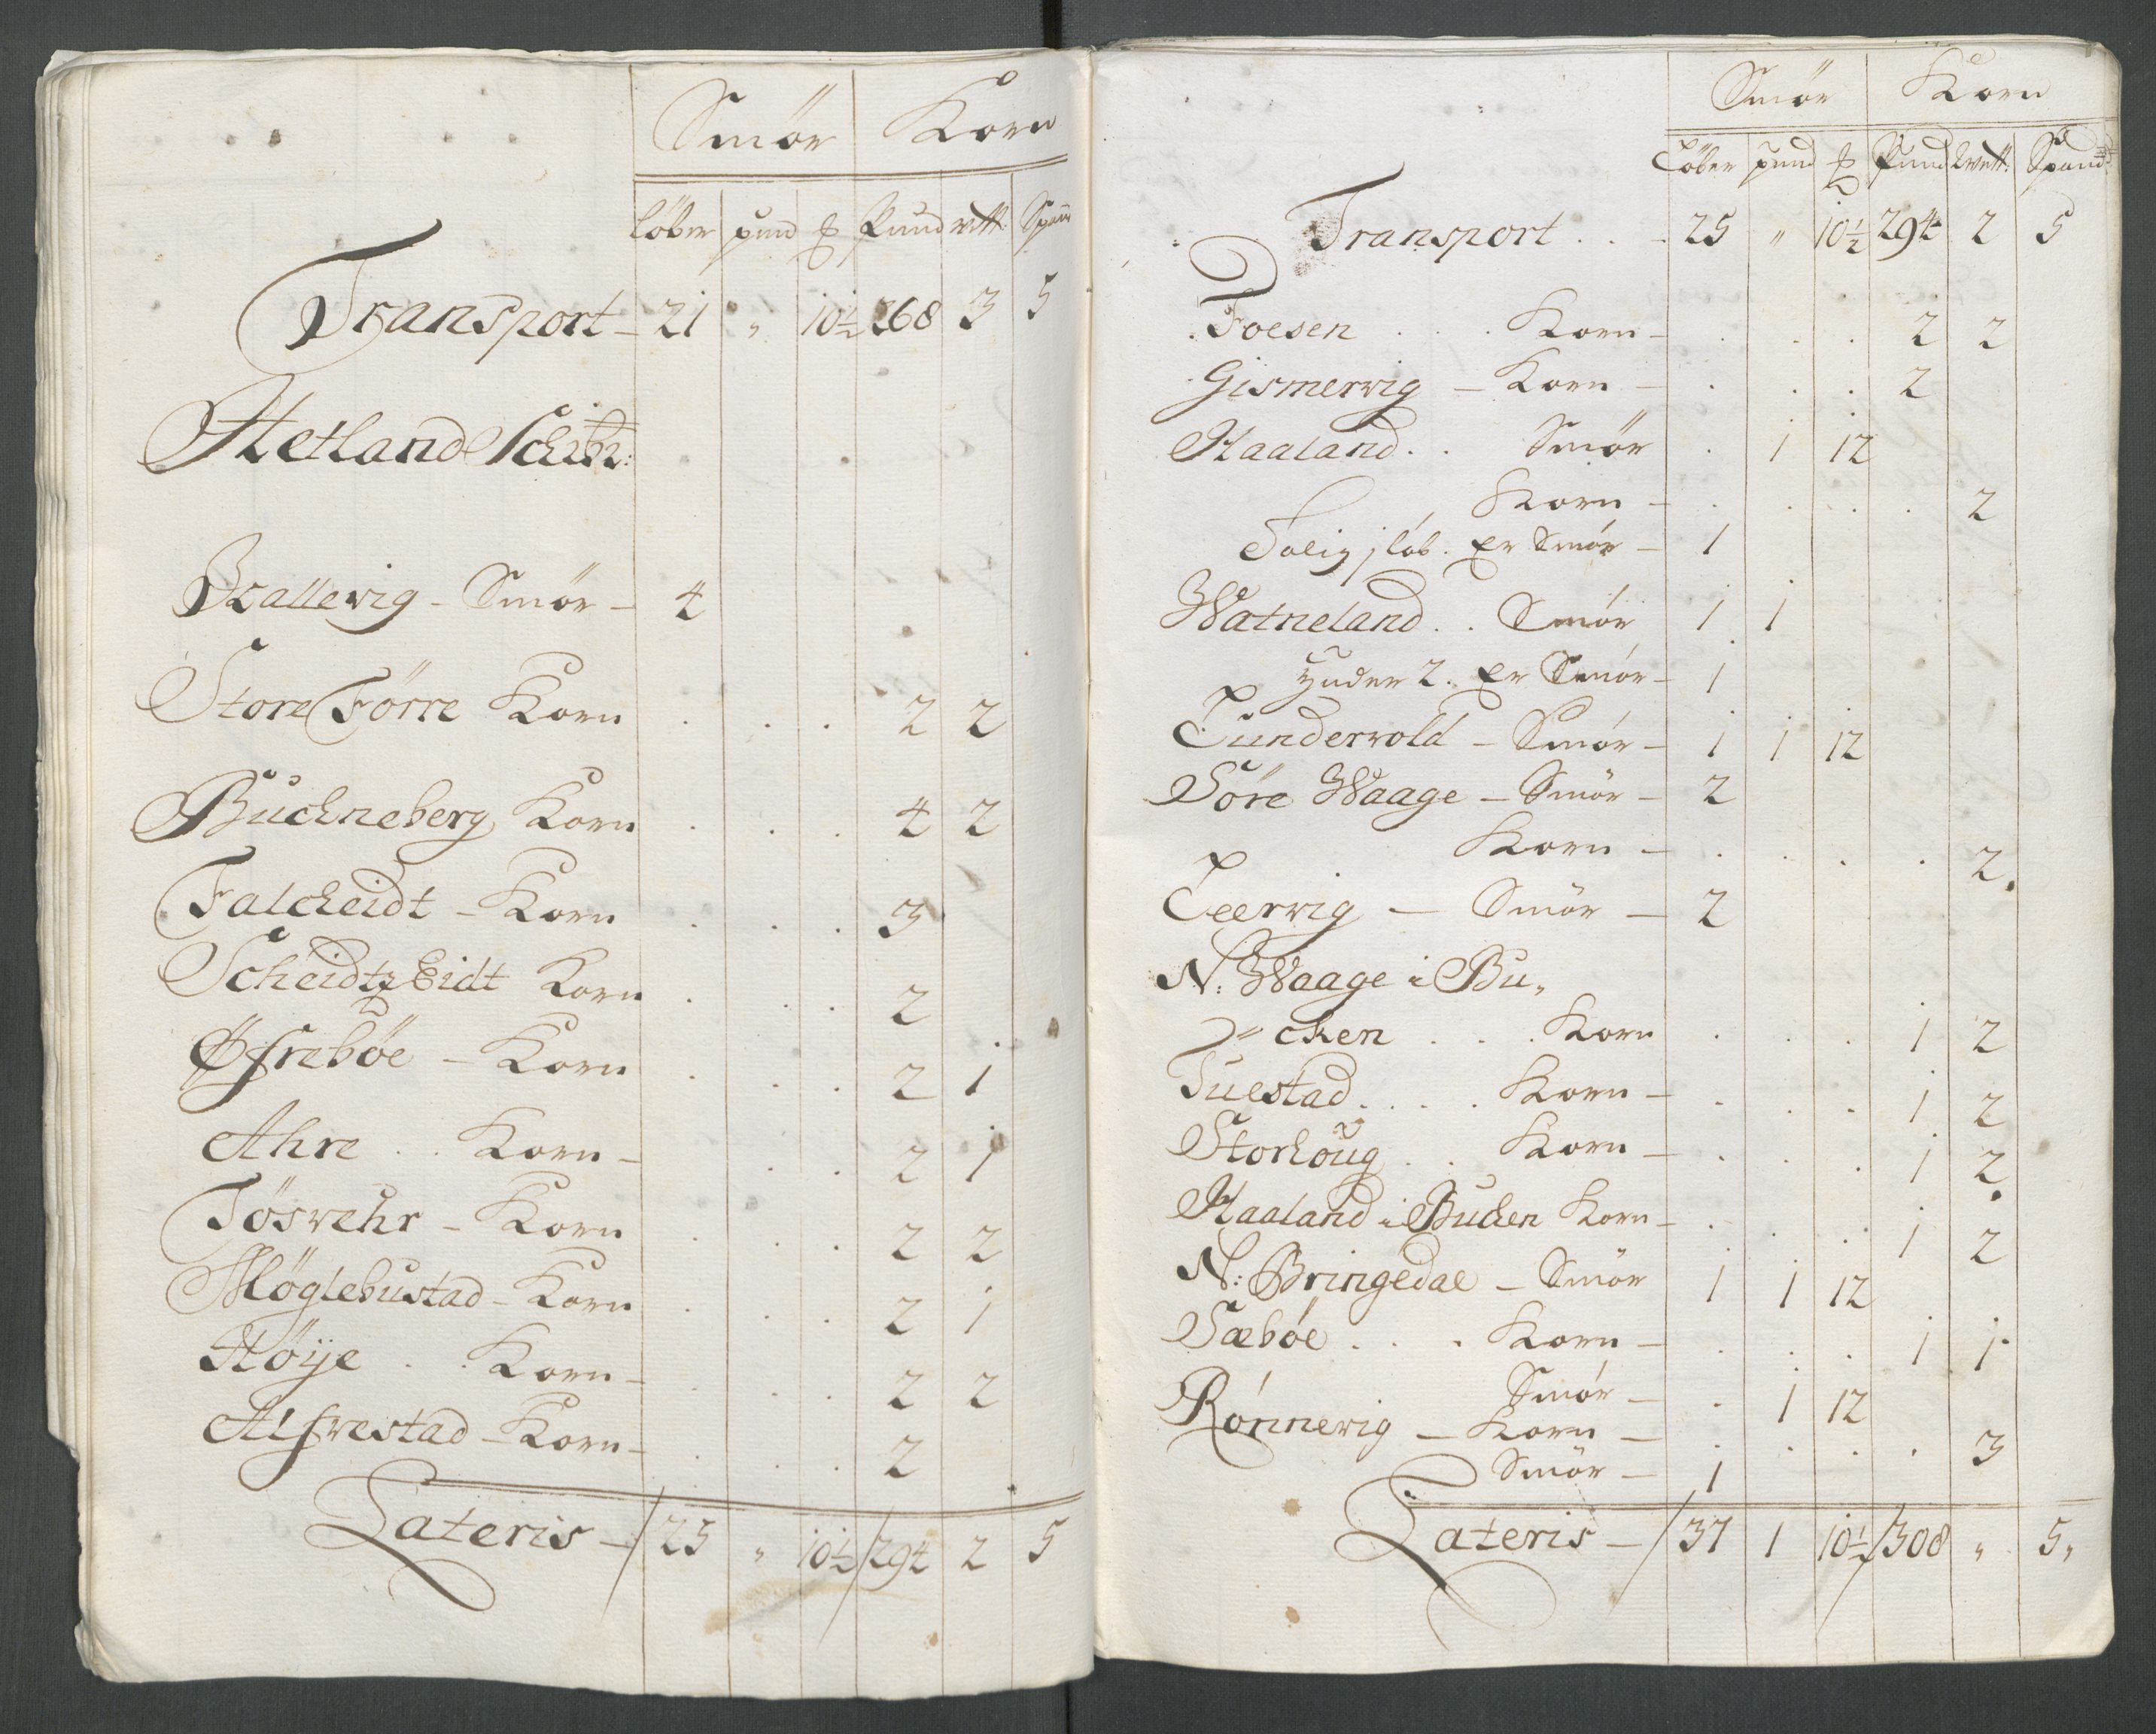 Smör Korn
löber pund ℔ Pund vett: Span
Transport - 21 " 10½ 268 3 5
Hetland Schibr:
Kallevig - Smör - 4
Store Förre Korn . . . 2 2
Buchneberg Korn . . . 4 2
Falcheidt - Korn . . . 3
Scheidtz Eidt Korn . . . 2
Øfrebøe - Korn . . . 2 1
Ahre . . Korn - . . 2 1
Tøsvehr - Korn . . . 2 2
Møglebustad - Korn . . . 2 1
Høije . . Korn - . . . 2 2
Alfvestad - Korn - . . . 2
Lateris - 25 " 10½ 294 2 5
Smör Korn
Löber pund ℔ Pund Vett: Spand:
Transport . . . 25 " 10½ 294 2 5
Foesen . . . Korn - . . . 2 2
Gismervig - Korn - . . . 2
Haaland . . Smör . 1 12
Korn - . . . . 2
Salig j löb. Er Smör - 1
Watneland . . Smör 1 1
Huder 2. Er Smör - 1
Lundervold - Smör - 1 1 12
Söre Waage - Smör - 2
Korn - . . . . 2
Leervig - Smör - 2
N: Waage i Bu,
cken . . . Korn . . . 1 2
Tuestad . . . . Korn - . . . 1 2
Storhoug . . Korn - . . . 1 2
Haaland i Buchen Korn - . . . 1 2
N: Bringedal - Smör 1 1 12
Sæbøe . . . Korn - . . . 1 1
Smör - . 1 12
Rönnevig - Korn - . . . . 3
Smör - 1
Lateris - 37 1 10½ 308 " 5,